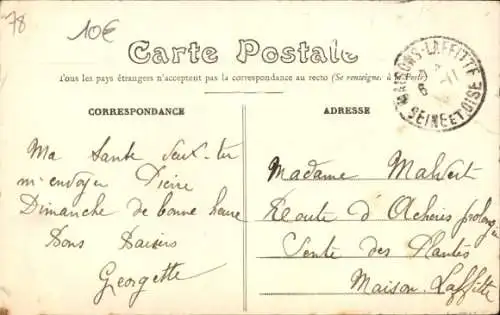 78
10€
Carte Postale
Tous les pays étrangers n'acceptent pas la correspondance au recto (Se renseigner à la Poste)
CORRESPONDANCE
Ma Tante Veux-tu
m'envoyer Pierre
Dimanche de bonne heure
Bons Baisers
Georgette
ADRESSE
Madame
Route d'Achères prolongée
Sente des Plantes
Maison-Laffitte
MAISONS-LAFFITTE
6 -11
SEINE ET OISE